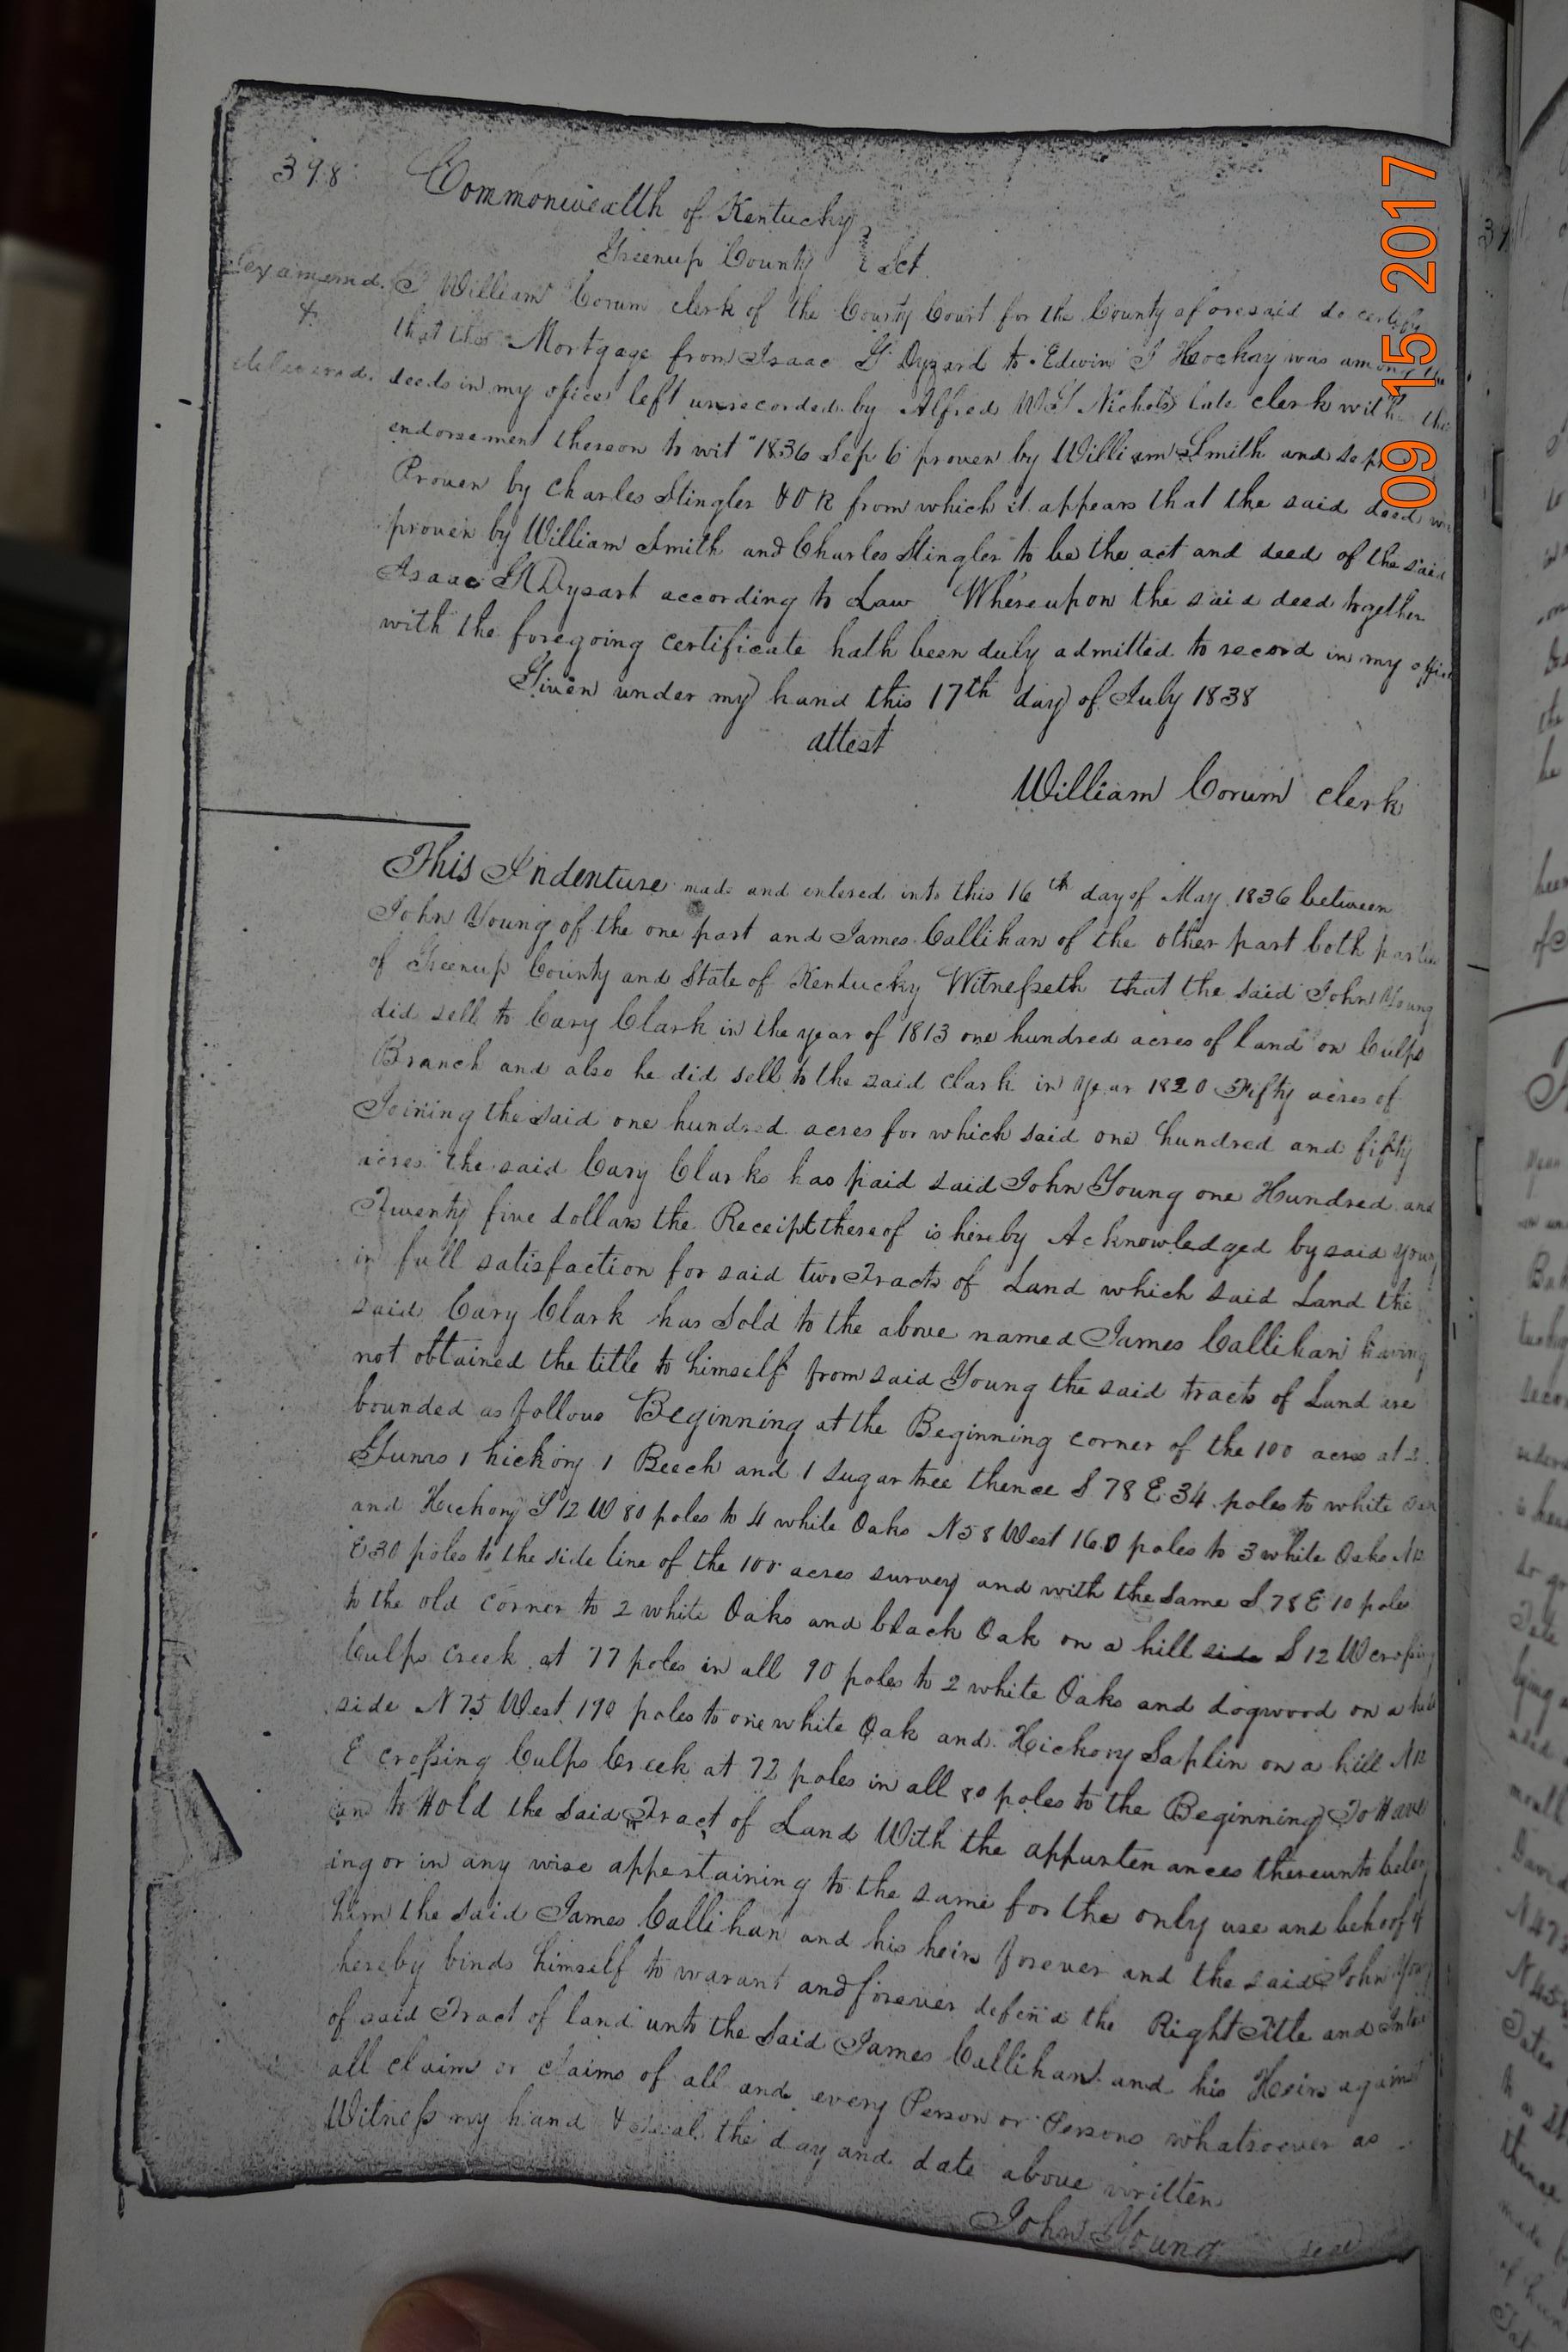 398
Commonwealth of Kentucky
Greenup County Sct
examemd. I William Corum clerk of the County Court for the County aforesaid do certify
& that this Mortgage from Isaac G Dyzard to Edwin J Hockay was among the
delivered. deeds in my office left unrecorded by Alfred W G Nichols late clerk with the
endorsement thereon to wit "1836 Sep 6 proven by William Smith and
Proven by Charles Stingler & O R from which it appears that the said deed was
proven by William Smith and Charles Stingler to be the act and deed of the said
Isaac G Dysart according to Law Whereupon the said deed together
with the foregoing certificate hath been duly admitted to record in my office
Given under my hand this 17th day of July 1838
attest
William Corum clerk
This Indenture made and entered into this 16th day of May 1836 between
John Young of the one part and James Callihan of the other part both parties
of Greenup County and State of Kentucky Witnesseth that the said John Young
did sell to Cary Clark in the year of 1813 one hundred acres of land on Culps
Branch and also he did sell to the said Clark in year 1820 Fifty acres of
Joining the said one hundred acres for which said one hundred and fifty
acres the said Cary Clarks has paid said John Young one Hundred and
Twenty five dollars the Receipt thereof is hereby Acknowledged by said Young
in full satisfaction for said two Tracts of Land which said Land the
said Cary Clark has Sold to the above named James Callihan having
not obtained the title to himself from said Young the said tracts of Land are
bounded as follows Beginning at the Beginning corner of the 100 acres at 2
Gums 1 hickory 1 Beech and 1 sugar tree thence S 78 E 34 poles to white oak
and Hickory S 12 W 80 poles to 4 white Oaks N 58 West 160 poles to 3 white Oaks N 12
E 30 poles to the side line of the 100 acres survey and with the same S 78 E 10 poles
to the old corner to 2 white Oaks and black Oak on a hill side S 12 W crossing
Culps Creek at 77 poles in all 90 poles to 2 white Oaks and dogwood on a hill
side N 75 West 190 poles to one white Oak and Hickory Saplin on a hill N 12
E crossing Culps Creek at 72 poles in all 80 poles to the Beginning To Have
and to Hold the Said Tract of Land With the appurtenances thereunto belong
ing or in any wise appertaining to the same for the only use and behoof of
him the said James Callihan and his heirs forever and the said John Young
hereby binds himself to warant and forever defend the Right Title and Inter
of said Tract of land unto the Said James Callihan and his Heirs against
all claim or claims of all and every Person or Persons whatsoever as
Witness my hand & seal the day and date above written
John Young seal
09 15 2017